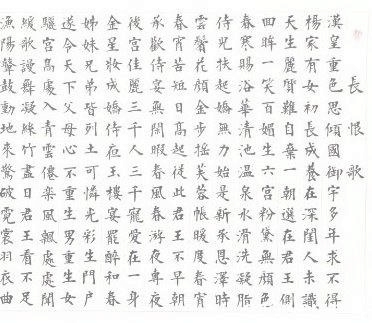 長恨歌
漢皇重色思傾國御宇多年求不得
楊家有女初長成養在深閨人未識
天生麗質難自棄一朝選在君王側
回眸一笑百媚生六宮粉黛無顏色
春寒賜浴華清池溫泉水滑洗凝脂
侍兒扶起嬌無力始是新承恩澤時
雲鬢花顏金步搖芙蓉帳暖度春宵
春宵苦短日高起從此君王不早朝
承歡侍宴無閒暇春從春游夜專夜
後宮佳麗三千人三千寵愛在一身
金屋妝成嬌侍夜玉樓宴罷醉和春
姊妹弟兄皆列土可憐光彩生門戶
遂令天下父母心不重生男重生女
驪宮高處入青雲仙樂風飄處處聞
緩歌慢舞凝絲竹盡日君王看不足
漁陽鼙鼓動地來驚破霓裳羽衣曲